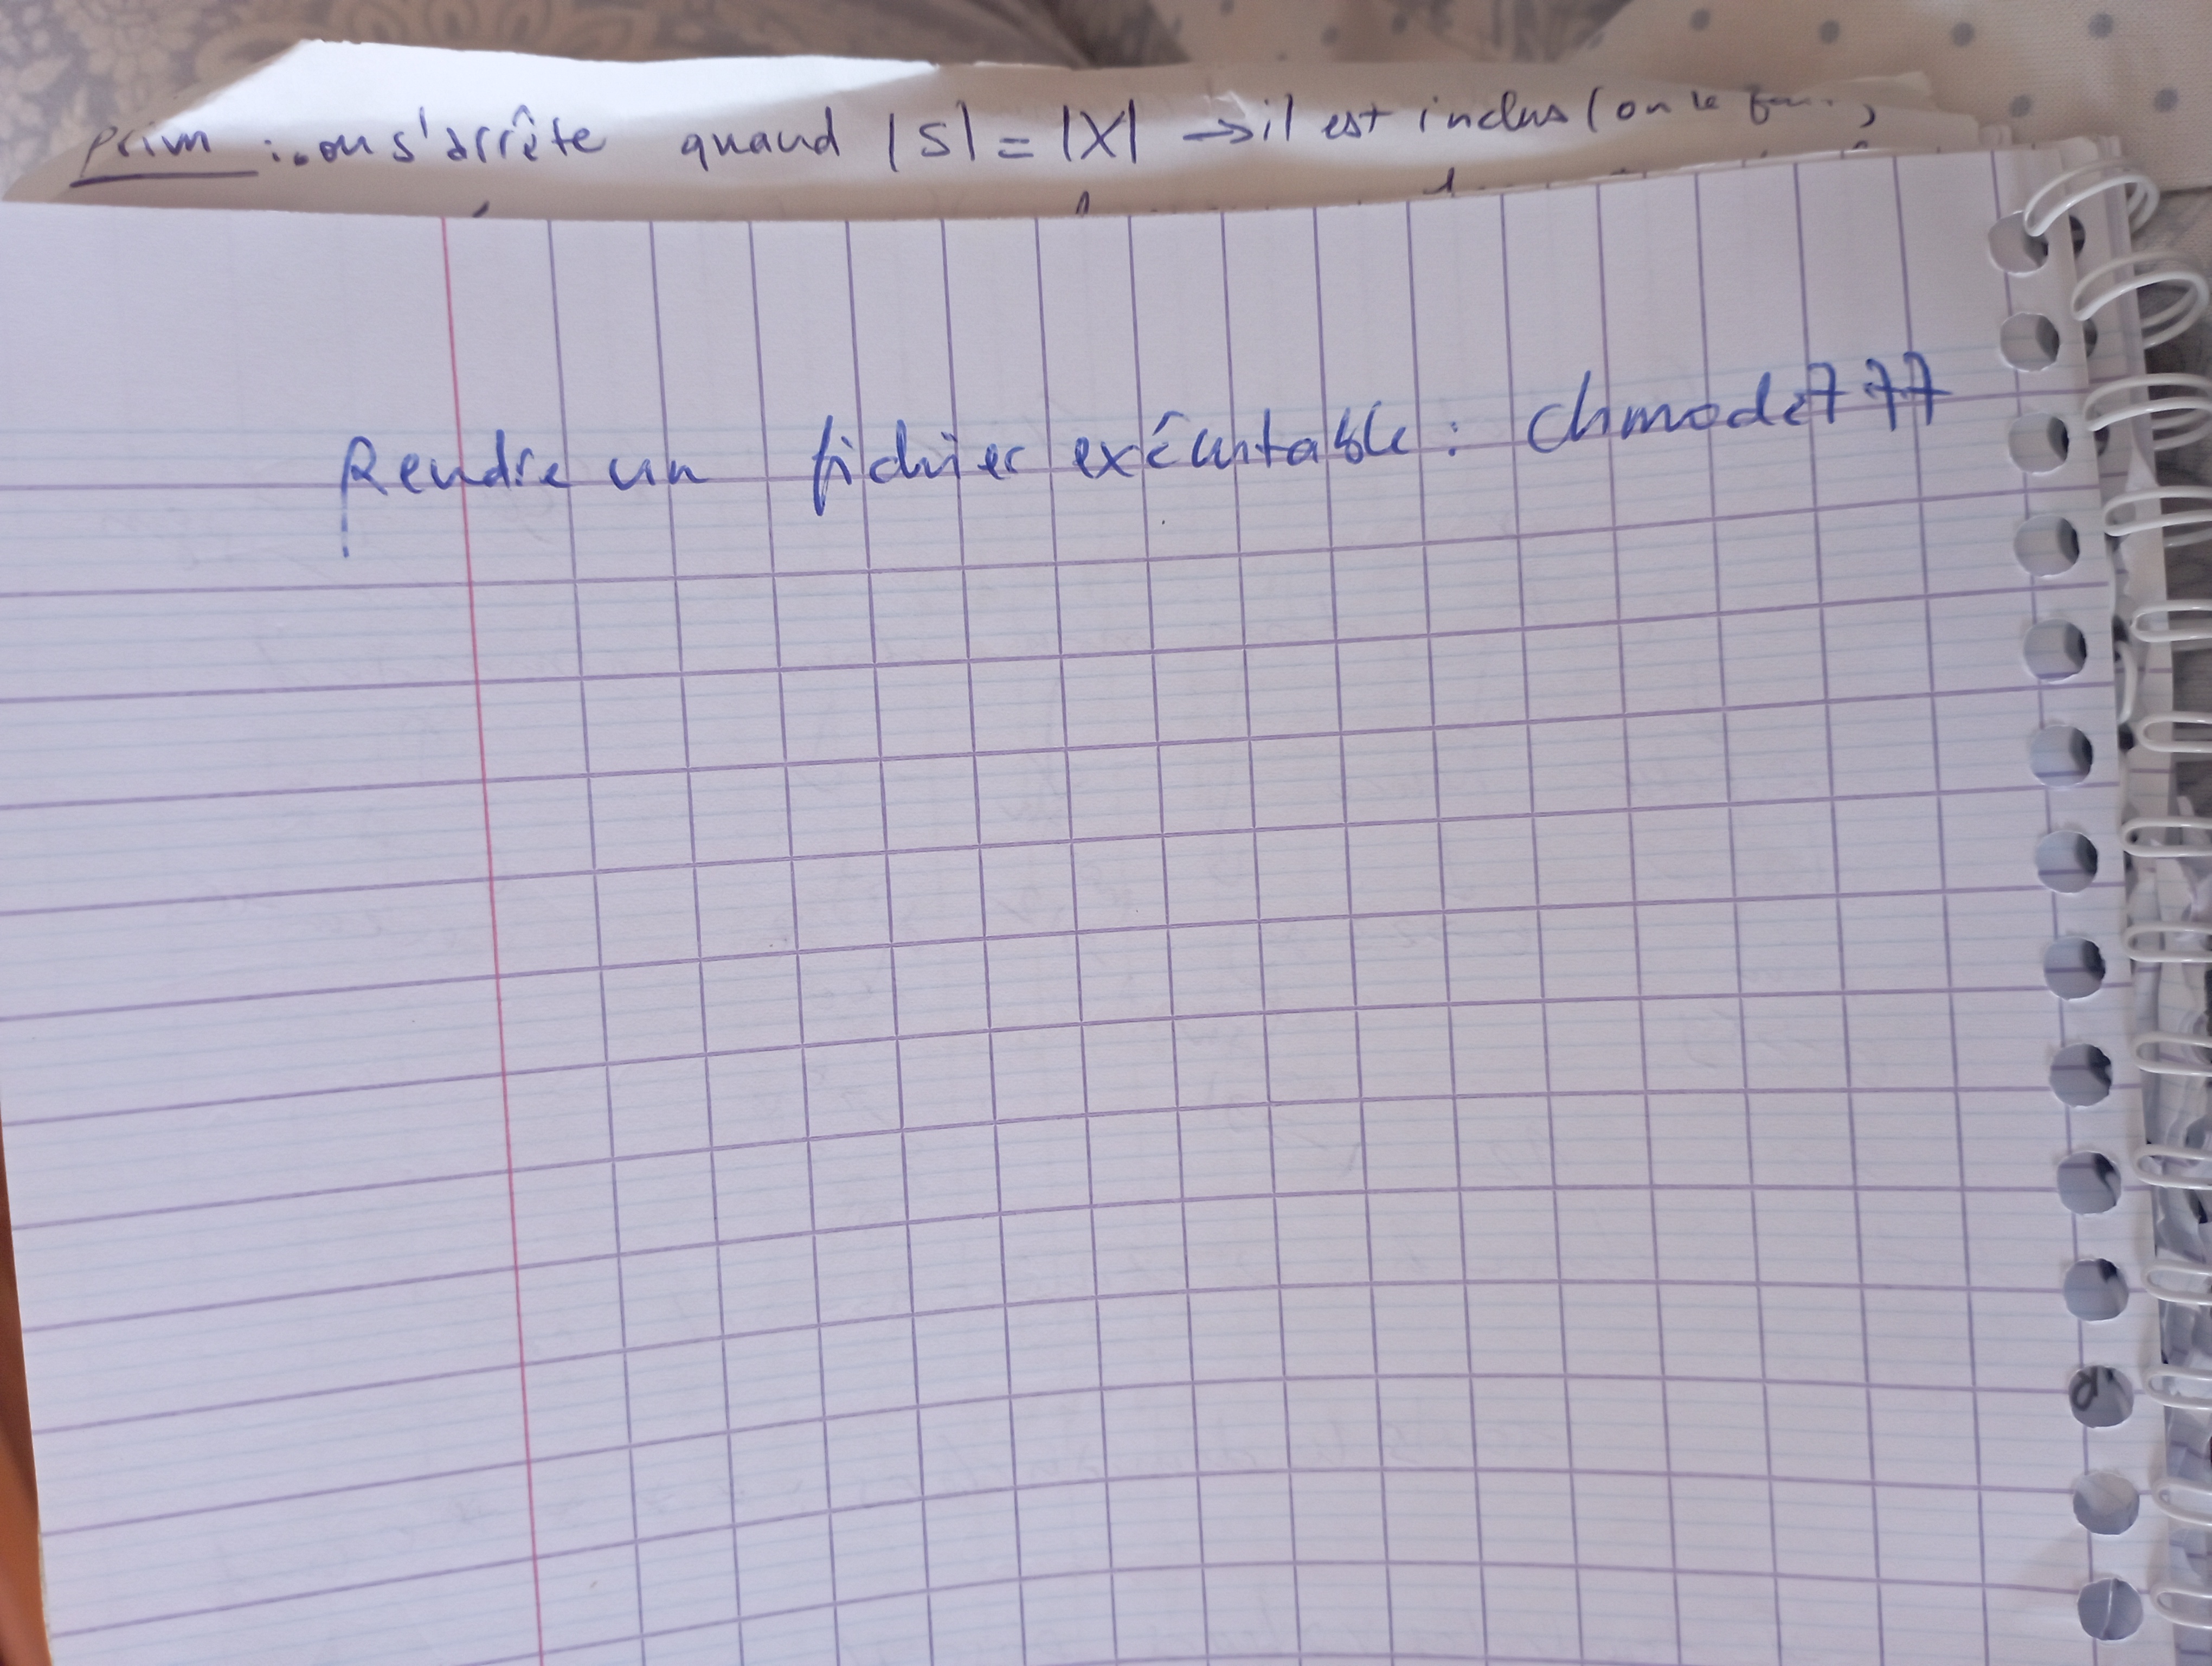 Prim : on s'arrête quand |S| = |X| → il est inclus (on le
Rendre un fichier exécutable : Chmode 777